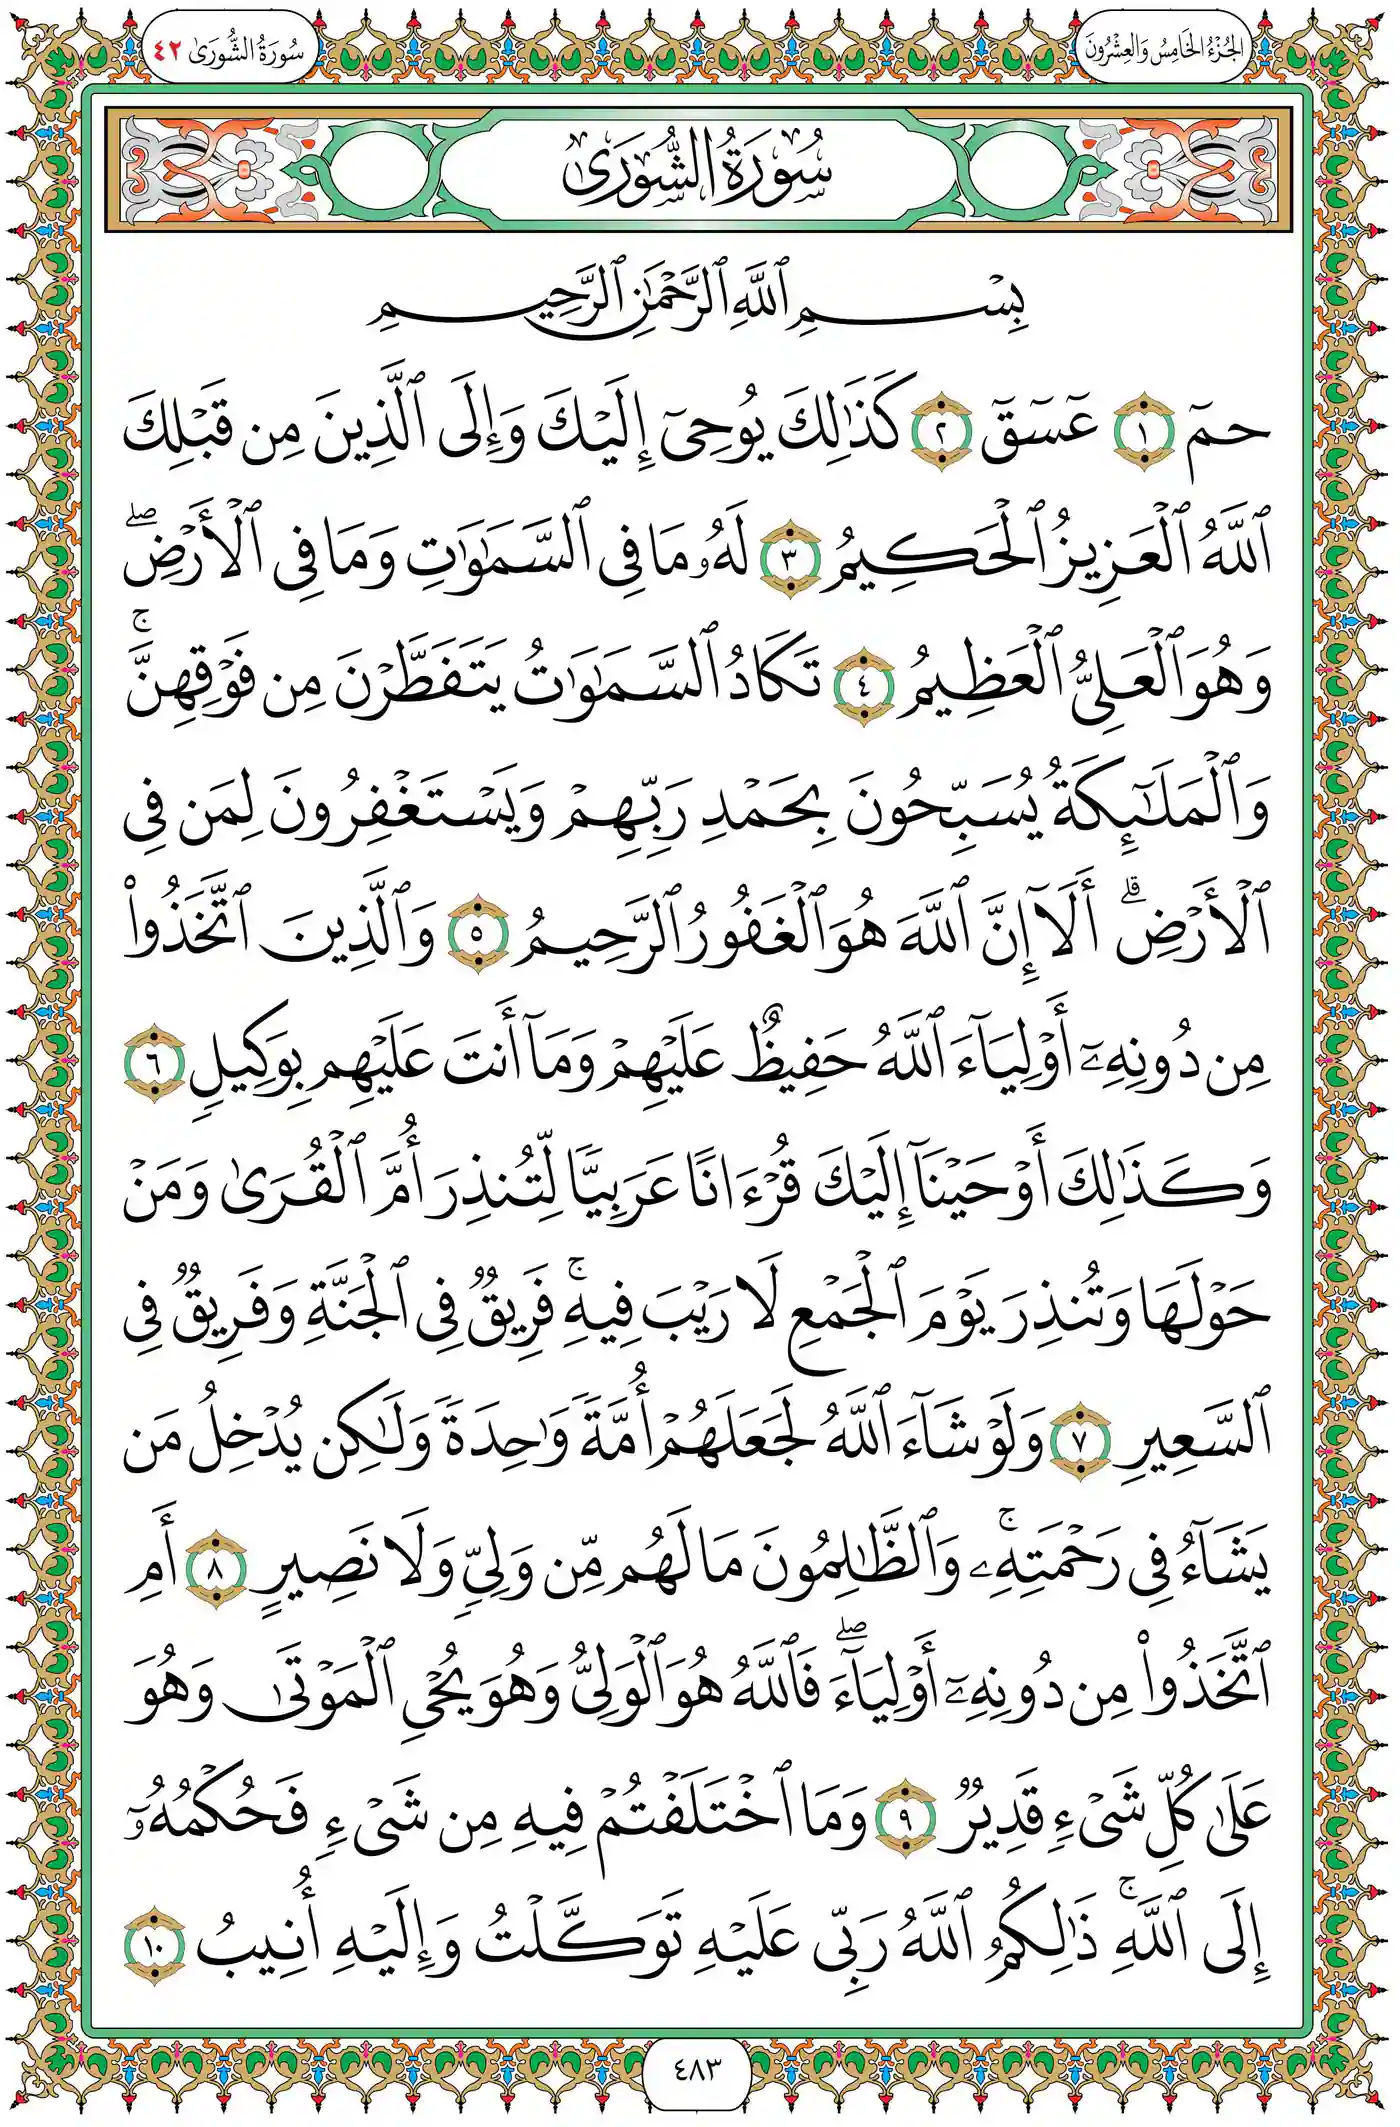 الجُزْءُ الخَامِسُ وَالعِشْرُونَ
سُورَةُ الشُّورَىٰ ٤٢
سُورَةُ الشُّورَىٰ
بِسْمِ ٱللَّهِ ٱلرَّحْمَٰنِ ٱلرَّحِيمِ
حمٓ ١ عٓسٓقٓ ٢ كَذَٰلِكَ يُوحِىٓ إِلَيْكَ وَإِلَى ٱلَّذِينَ مِن قَبْلِكَ
ٱللَّهُ ٱلْعَزِيزُ ٱلْحَكِيمُ ٣ لَهُۥ مَا فِى ٱلسَّمَٰوَٰتِ وَمَا فِى ٱلْأَرْضِۖ
وَهُوَ ٱلْعَلِىُّ ٱلْعَظِيمُ ٤ تَكَادُ ٱلسَّمَٰوَٰتُ يَتَفَطَّرْنَ مِن فَوْقِهِنَّۚ
وَٱلْمَلَٰٓئِكَةُ يُسَبِّحُونَ بِحَمْدِ رَبِّهِمْ وَيَسْتَغْفِرُونَ لِمَن فِى
ٱلْأَرْضِۗ أَلَآ إِنَّ ٱللَّهَ هُوَ ٱلْغَفُورُ ٱلرَّحِيمُ ٥ وَٱلَّذِينَ ٱتَّخَذُوا۟
مِن دُونِهِۦٓ أَوْلِيَآءَ ٱللَّهُ حَفِيظٌ عَلَيْهِمْ وَمَآ أَنتَ عَلَيْهِم بِوَكِيلٍ ٦
وَكَذَٰلِكَ أَوْحَيْنَآ إِلَيْكَ قُرْءَانًا عَرَبِيًّا لِّتُنذِرَ أُمَّ ٱلْقُرَىٰ وَمَنْ
حَوْلَهَا وَتُنذِرَ يَوْمَ ٱلْجَمْعِ لَا رَيْبَ فِيهِۚ فَرِيقٌ فِى ٱلْجَنَّةِ وَفَرِيقٌ فِى
ٱلسَّعِيرِ ٧ وَلَوْ شَآءَ ٱللَّهُ لَجَعَلَهُمْ أُمَّةً وَٰحِدَةً وَلَٰكِن يُدْخِلُ مَن
يَشَآءُ فِى رَحْمَتِهِۦۚ وَٱلظَّٰلِمُونَ مَا لَهُم مِّن وَلِىٍّ وَلَا نَصِيرٍ ٨ أَمِ
ٱتَّخَذُوا۟ مِن دُونِهِۦٓ أَوْلِيَآءَۖ فَٱللَّهُ هُوَ ٱلْوَلِىُّ وَهُوَ يُحْىِ ٱلْمَوْتَىٰ وَهُوَ
عَلَىٰ كُلِّ شَىْءٍ قَدِيرٌ ٩ وَمَا ٱخْتَلَفْتُمْ فِيهِ مِن شَىْءٍ فَحُكْمُهُۥٓ
إِلَى ٱللَّهِۚ ذَٰلِكُمُ ٱللَّهُ رَبِّى عَلَيْهِ تَوَكَّلْتُ وَإِلَيْهِ أُنِيبُ ١٠
٤٨٣